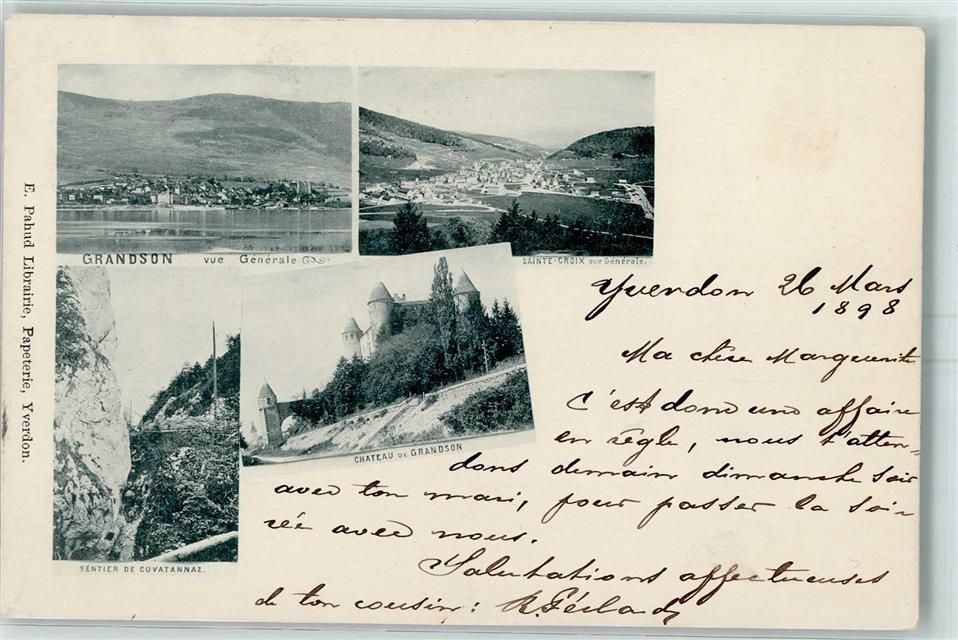 E. Pahud Librairie, Papeterie, Yverdon.
GRANDSON vue Générale
SAINTE-CROIX vue Générale.
CHATEAU DE GRANDSON
SENTIER DE COVATANNAZ.
Yverdon 26 Mars
1898
Ma chère Marguerite
C'est donc une affaire
en règle, nous t'atten-
dons demain dimanche soir
avec ton mari, pour passer la soi-
rée avec nous.
Salutations affectueuses
de ton cousin: